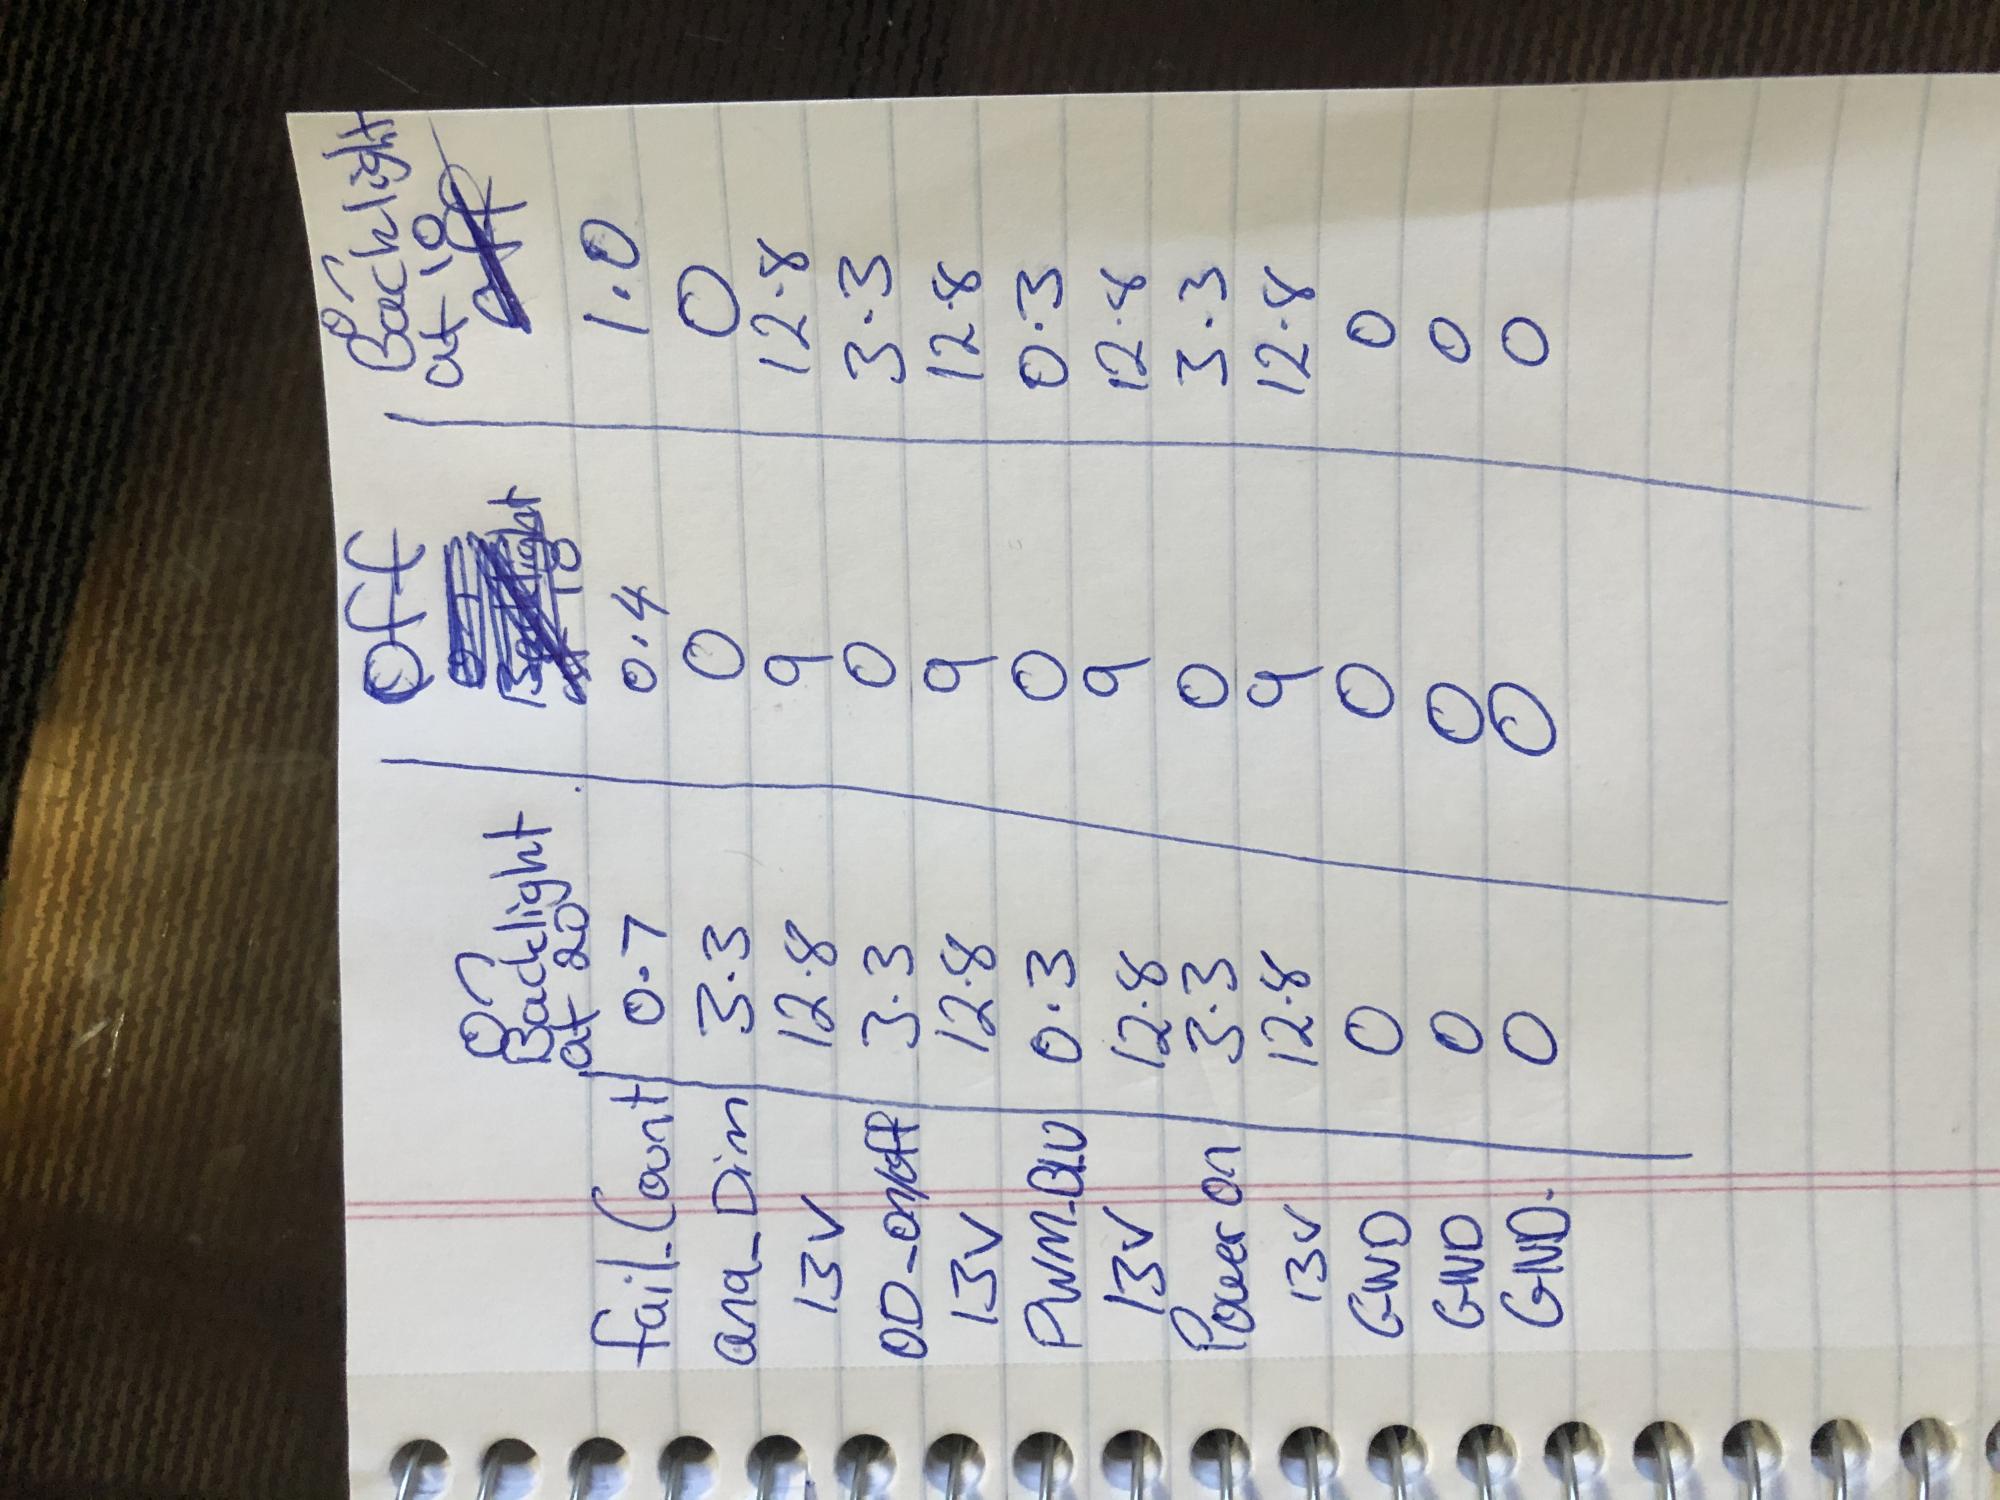 On Off On
Backlight at 20 Backlight at 10
fail_Count 0.7 0.4 1.0
ana_Dim 3.3 0 0
13V 12.8 9 12.8
OD_on/off 3.3 0 3.3
13V 12.8 9 12.8
PWM_BLU 0.3 0 0.3
13V 12.8 9 12.8
Power on 3.3 0 3.3
13V 12.8 9 12.8
GND 0 0 0
GND 0 0 0
GND. 0 0 0